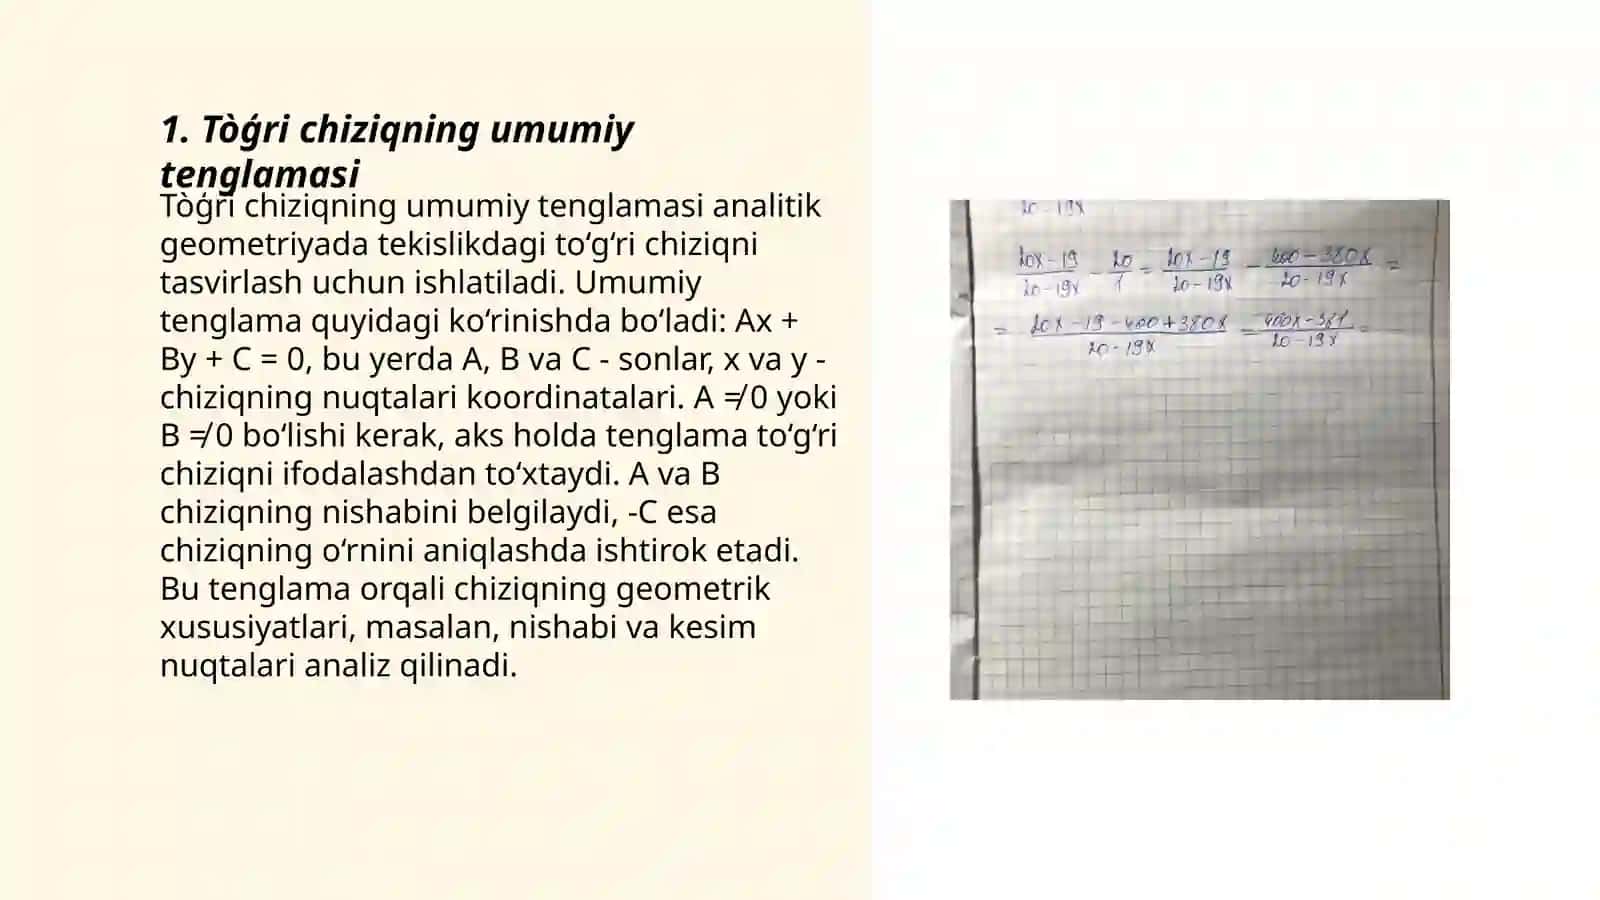 1. Tòǵri chiziqning umumiy
tenglamasi
Tòǵri chiziqning umumiy tenglamasi analitik
geometriyada tekislikdagi to‘g‘ri chiziqni
tasvirlash uchun ishlatiladi. Umumiy
tenglama quyidagi ko‘rinishda bo‘ladi: Ax +
By + C = 0, bu yerda A, B va C - sonlar, x va y -
chiziqning nuqtalari koordinatalari. A ≠ 0 yoki
B ≠ 0 bo‘lishi kerak, aks holda tenglama to‘g‘ri
chiziqni ifodalashdan to‘xtaydi. A va B
chiziqning nishabini belgilaydi, -C esa
chiziqning o‘rnini aniqlashda ishtirok etadi.
Bu tenglama orqali chiziqning geometrik
xususiyatlari, masalan, nishabi va kesim
nuqtalari analiz qilinadi.
20-19x
20x-19 / 20-19x - 20 / 1 = 20x-19 / 20-19x - 400-380x / 20-19x =
= 20x-19-400+380x / 20-19x = / 20-19x =